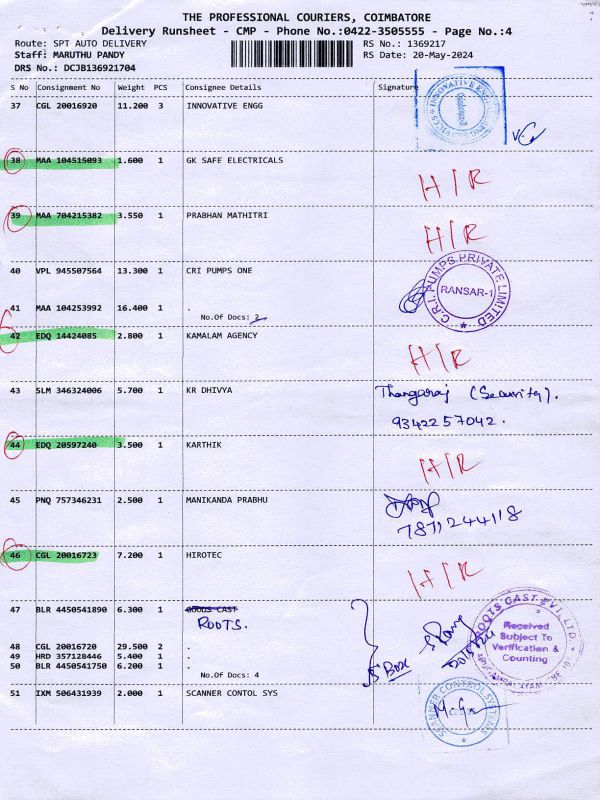 THE PROFESSIONAL COURIERS, COIMBATORE
Delivery Runsheet - CMP - Phone No.:0422-3505555 - Page No.:4
Route: SPT AUTO DELIVERY RS No.: 1369217
Staff: MARUTHU PANDY RS Date: 20-May-2024
DRS No.: DCJB136921704
S No Consignment No Weight PCS Consignee Details Signature
37 CGL 20016920 11.200 3 INNOVATIVE ENGG
38 MAA 104515093 1.600 1 GK SAFE ELECTRICALS
H/R
39 MAA 704215382 3.550 1 PRABHAN MATHITRI
H/R
40 VPL 945507564 13.300 1 CRI PUMPS ONE
C.R.I. PUMPS PRIVATE LIMITED
RANSAR-1
41 MAA 104253992 16.400 1 .
No.Of Docs: 2
42 EDQ 14424085 2.800 1 KAMALAM AGENCY
H/R
43 SLM 346324006 5.700 1 KR DHIVYA Thangaraj (Security).
9342257042.
44 EDQ 20597240 3.500 1 KARTHIK
H/R
45 PNQ 757346231 2.500 1 MANIKANDA PRABHU
7871244118
46 CGL 20016723 7.200 1 HIROTEC
H/R
47 BLR 4450541890 6.300 1 GOODS CAST
ROOTS.
ROOTS CAST PVT. LTD.
Received
Subject To
Verification &
Counting
48 CGL 20016720 29.500 2 .
49 HRD 357128446 5.400 1 .
50 BLR 4450541750 6.200 1 .
5 Box
No.Of Docs: 4
51 IXM 506431939 2.000 1 SCANNER CONTOL SYS
SCANNER CONTROL SYSTEMS